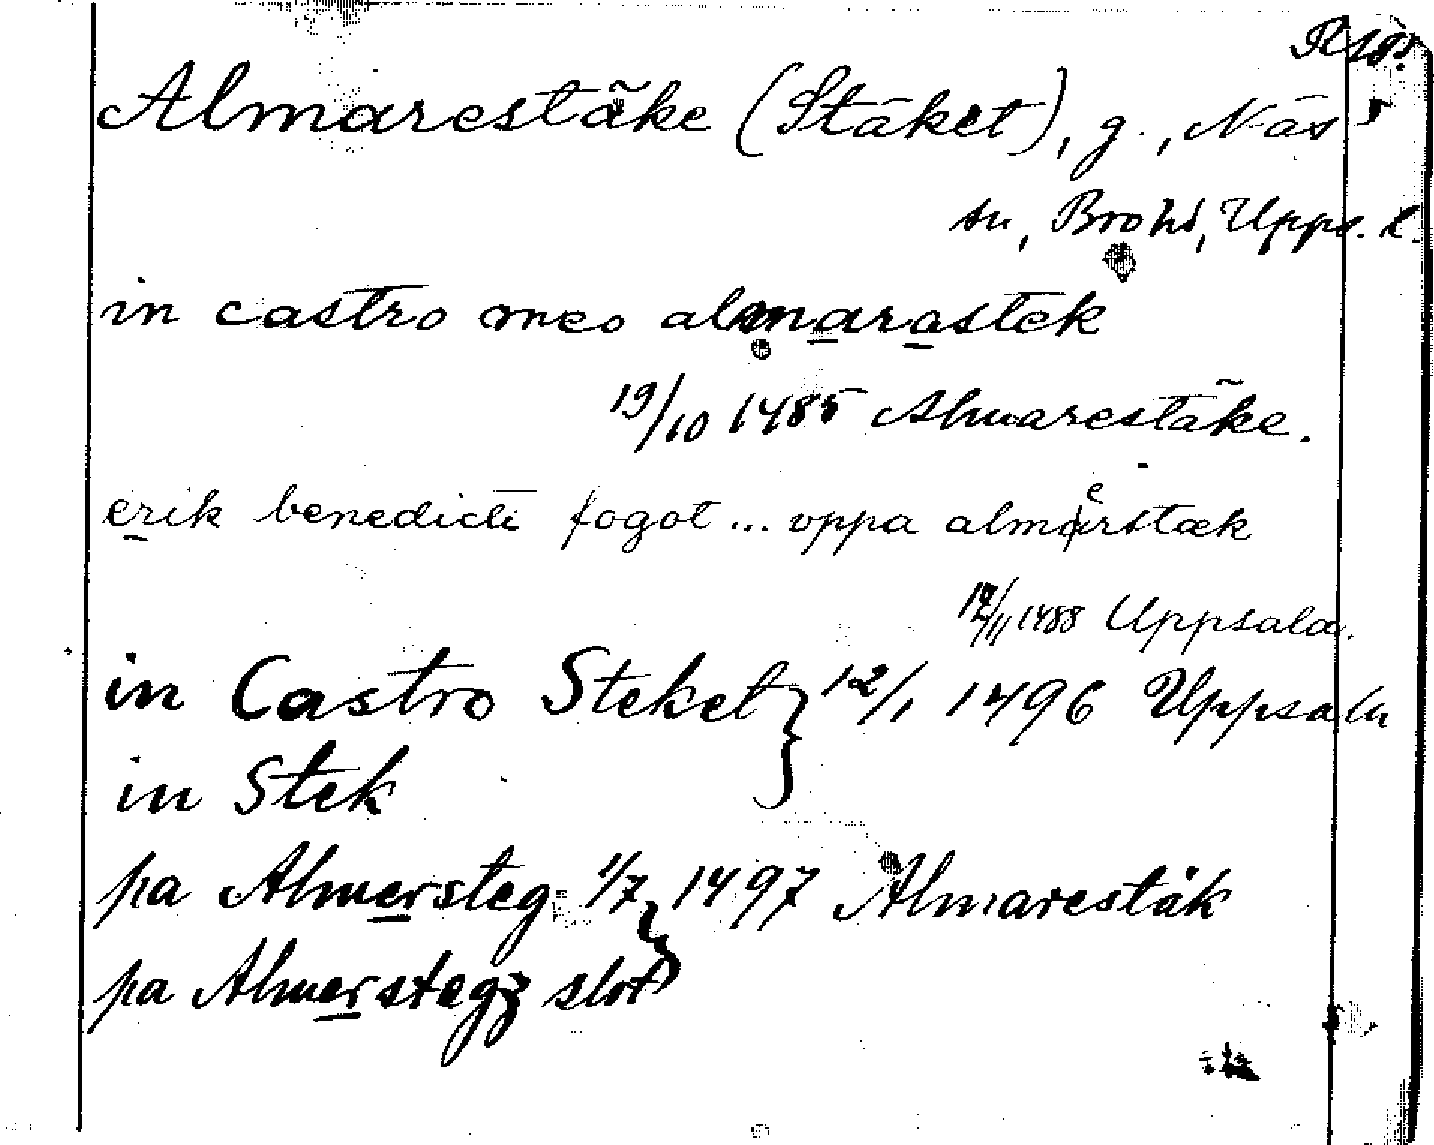 Almarestäke (Stäket), g., Näs
sn, Brohd, Upps. l.
in castro meo almarastek
19/10 1485 Almarestäke.
erik benedicti fogot ... vppa almarstæk
e
/11 1488 Uppsala.
in Castro Steket } 12/1 1496 Uppsala
in Stek
pa Almersteg 1/7 } 1497 Almarestäk
pa Almerstegz slot